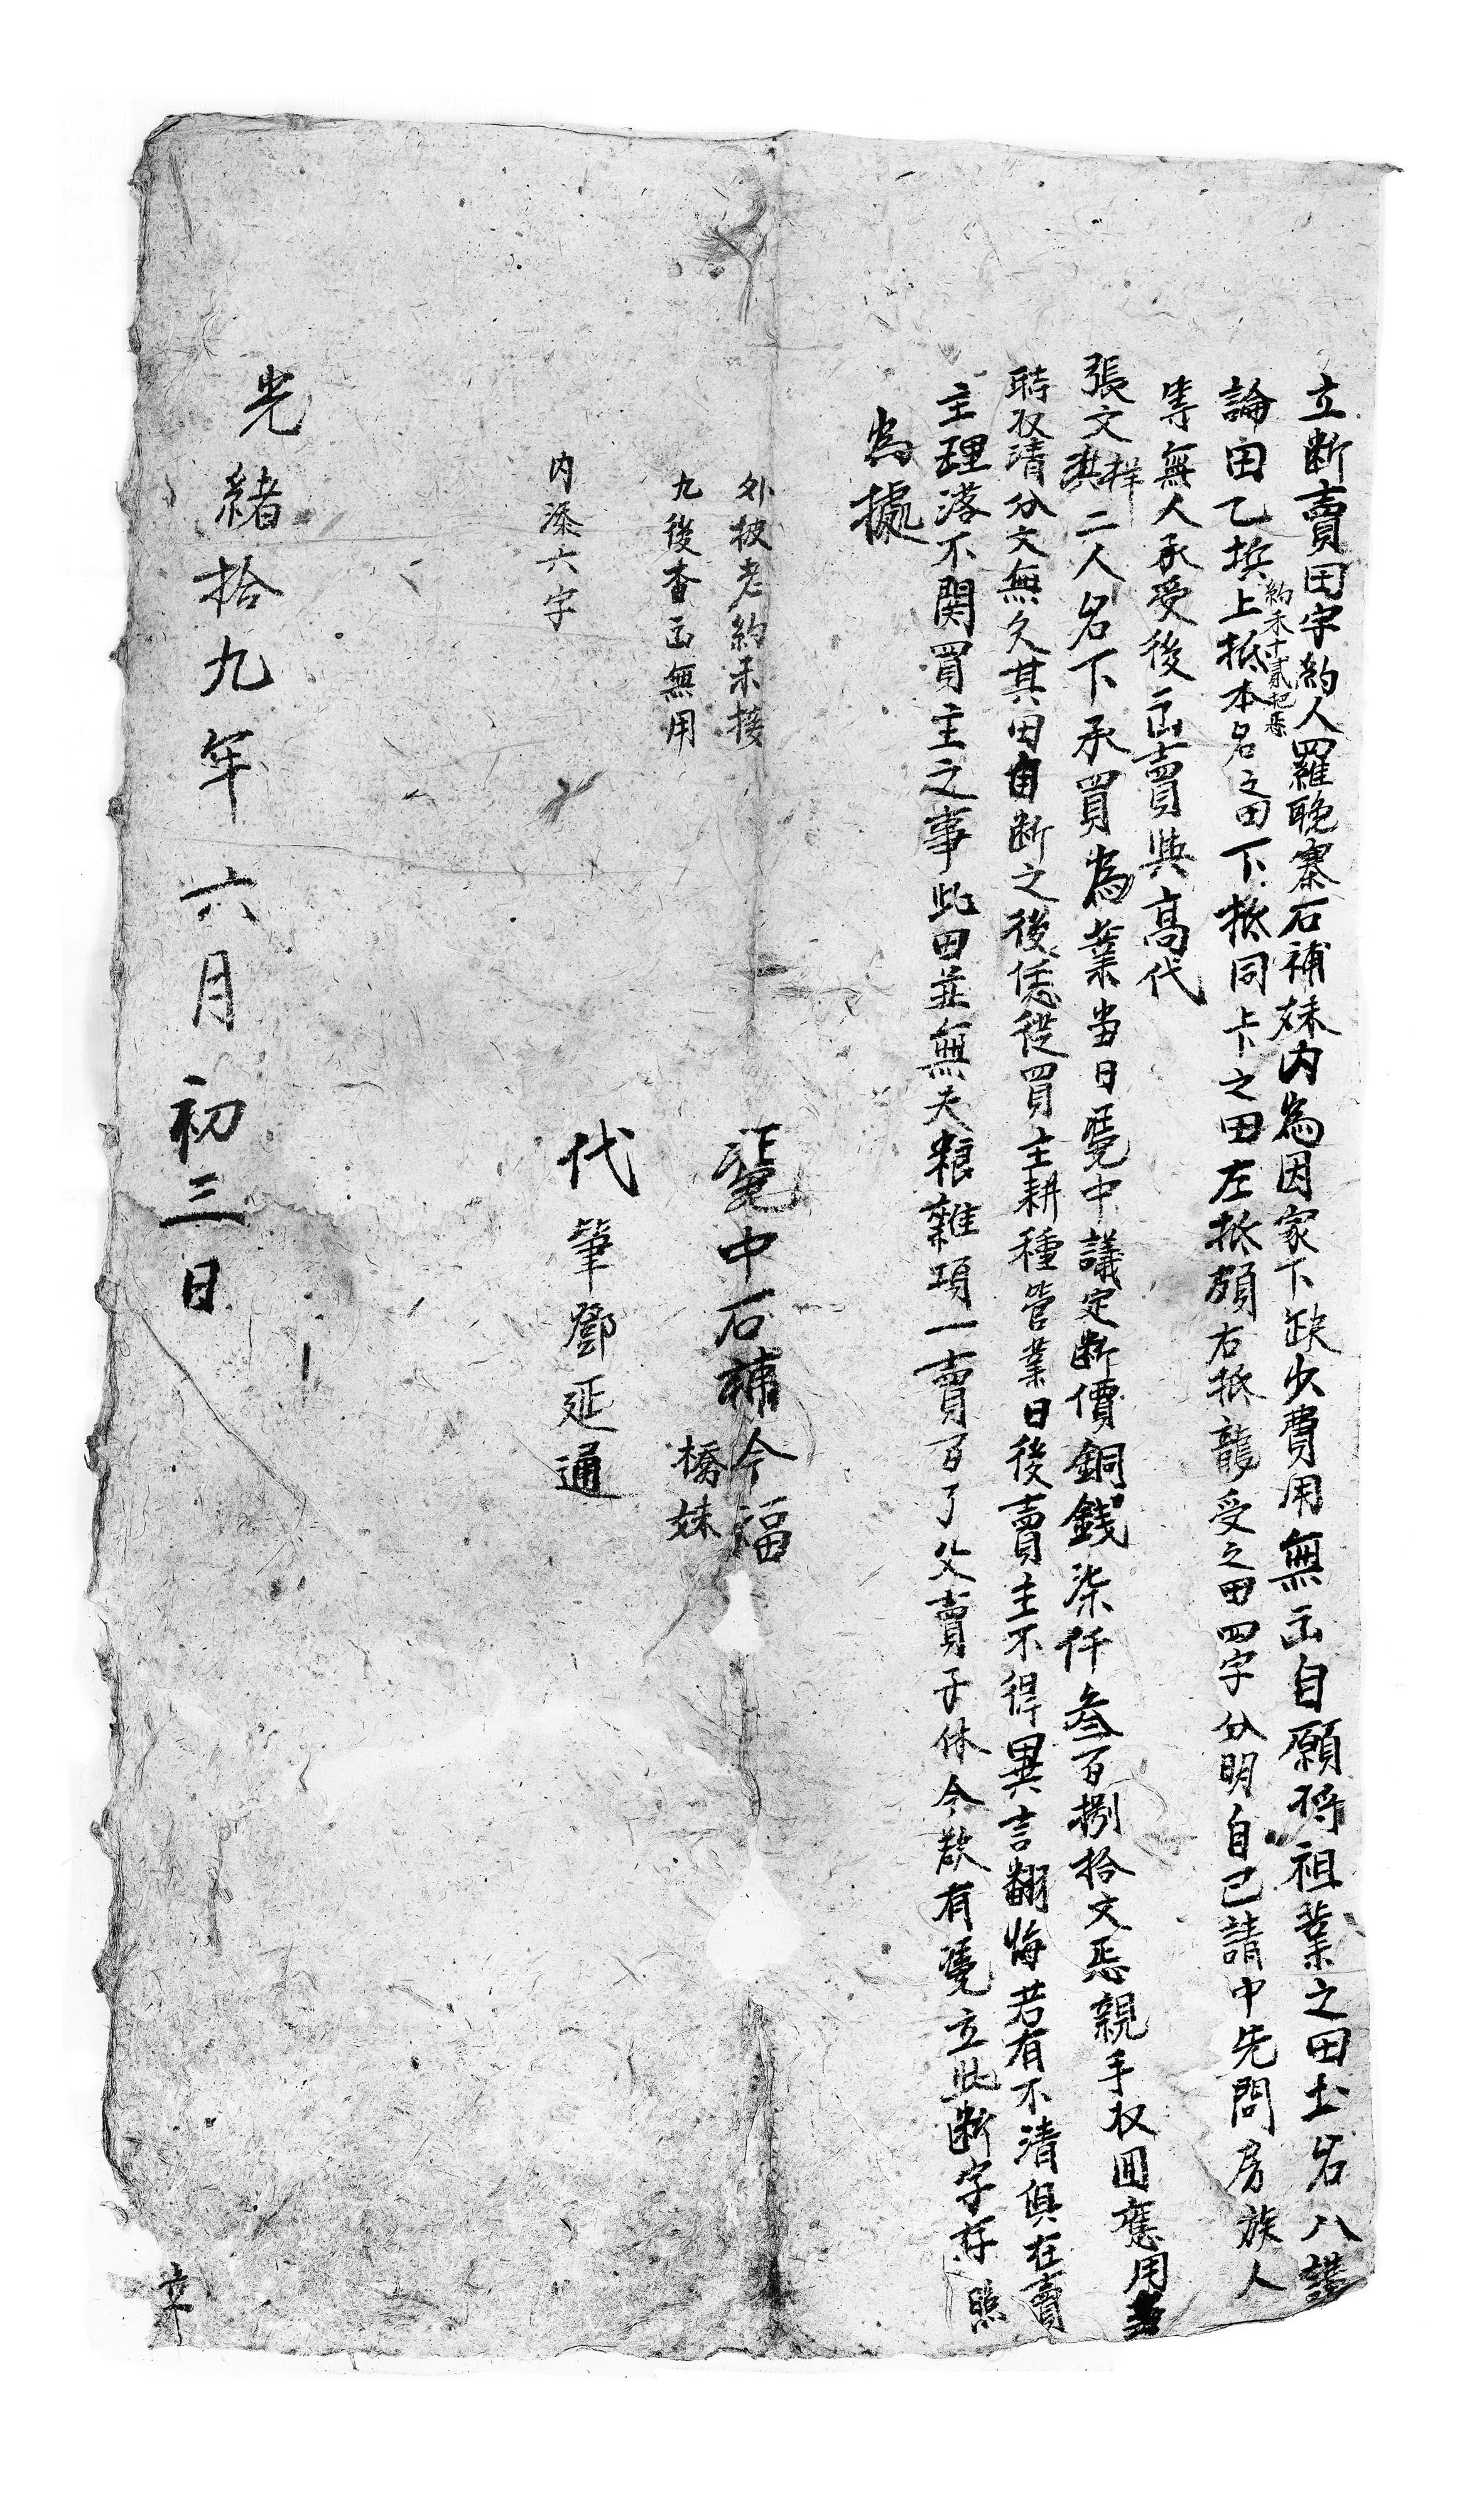 立断賣田字約人羅晚寨石補妹内為因家下缺少費用無出自願将祖業之田土名八
論田乙坵上抵本名之田下抵同卡之田左抵頗右抵龍受之田四字分明自己請中先問房族人
約禾十貳把
等無人承受後出賣與高代
張文祥二人名下承買為業当日凴中議定断價銅錢柒仟叁百捌拾文忢親手収囬應用
時収清分文無欠其田自断之後恁從買主耕種管業日後賣主不得異言翻悔若有不清俱在賣
主理落不関買主之事此田並無夫粮雜項一賣百了父賣子休今欲有凴立此断字存照
為據
外披老約未接
九後查出無用
凴中石補今福
橋妹
内添六字
代筆鄧延通
光緒拾九年六月初三日
立